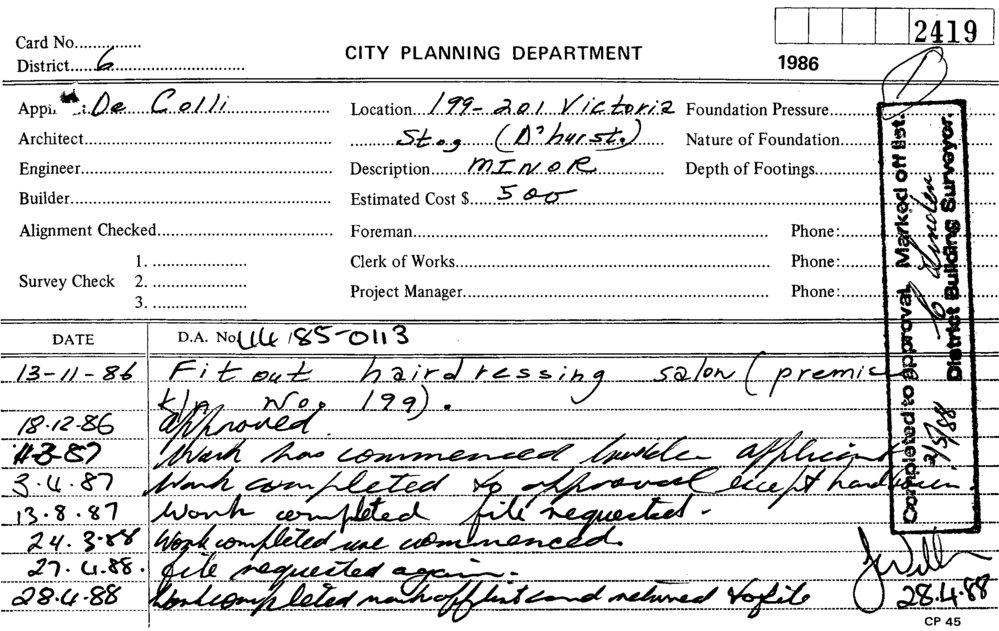 2419
Card No.
District 6
CITY PLANNING DEPARTMENT
1986
Appli t. De Colli
Location 199-201 Victoria
Foundation Pressure
Architect
St. (D'hurst.)
Nature of Foundation
Engineer
Description MINOR
Depth of Footings
Builder
Estimated Cost $ 500
Alignment Checked
Foreman
Phone:
Survey Check 1.
2.
3.
Clerk of Works
Phone:
Project Manager
Phone:
Completed to approval. Marked off list.
2/5/88
District Building Surveyor.
DATE
D.A. No 44 85-0113
13-11-86 Fit out hairdressing salon (premis
k/a No. 199).
18.12.86 approved.
11-3-87 Work has commenced builder applicant
3.4.87 Work completed to approval except
13.8.87 Work completed file requested.
24.3.88 Work completed use commenced.
27.4.88. file requested again.
28.4.88 Work completed mark off list and returned to file
28.4.88
CP 45